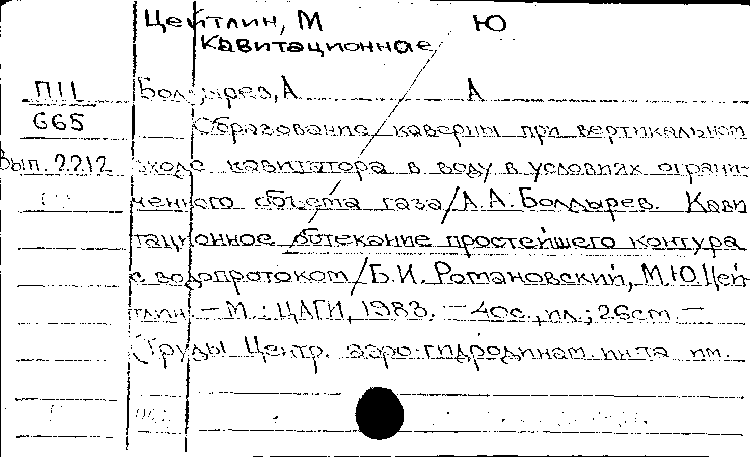 Цейтлин, М Ю
Кавитационное
П11 Болдырев, А А
665 Образование каверны при вертикальном
Вып. 2212 входе кавитатора в воду в условиях ограни-
ченного объема газа/А.А.Болдырев. Кави
тационное обтекание простейшего контура
с водопротоком/Б.И. Романовский, М.Ю.Цей
тлин. – М.: ЦАГИ, 1983. – 40с., ил.; 26см. –
(Труды Центр. аэро-гидродинам. ин-та им.